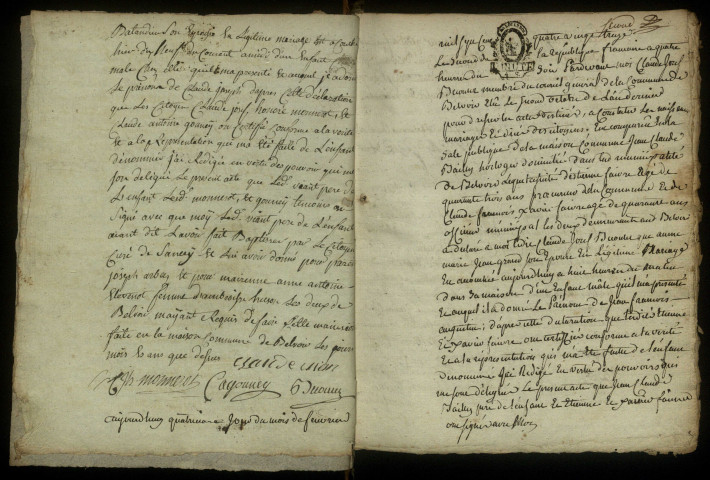 Balandier Son Epouse En Légitime mariage Est accouchée
hier dix neuf du Courant année d'un Enfant
male Lequel quil ma présenté et auquel il a donné
Le prénom de Claude Joseph d'apres Cette déclaration
que Les Citoyens Claude josef honoré monneret, et
Claude antoine gonney on Certifié Conforme a la vérité
et a la Représentation qui ma été faite de L'enfant
dénommé j'ai Rédigé en vertu des pouvoirs qui me
son délégué Le présent acte que Led. viant pere de
L'enfant Led. monneret et gonney témoins on
Signé avec moy Led. viant pere de L'enfant
ayant dit L'avoir fait Baptiser par Le Citoyen
Curé de Sancey et Lui avoir donné pour parrain
joseph et pour marienne anne antoine
femme Les deux de
Belvoir mayant Requis de faire
faite en la maison Commune de Belvoir Les jour
mois et ans que dessus
Claude viant
monneret Cagonney
aujourdhuy quatrieme jour du mois de fevrier
Second
avril mil sept cent quatre vingt treize
Le Second de la Republique francoise a quatre
heures du Soir Pardevant moi Claude Josef
membre du conseil general de la Commune de
Belvoir Elu Le Second octobre de L'an dernier
pour dresser Les actes destinés a Constater Les naissances
mariages Et décès des citoyens, Est comparu En la
Sale publique de la maison Commune Jean Claude
Bailly horloger domicilié dans La municipalité
de Belvoir Lequel assisté d'Etienne faivre agé de
quarante trois ans procureur de la Commune Et de
Claude francois Xavier faivre agé de quarante ans
officier municipal Les deux demeurants aud Belvoir
a déclaré a moi dit Claude Josef que anne
marie Jeangrand Son Epouse En Légitime Mariage
Est accouchée aujourdhuy a huit heures du Matin
dans Sa maison d'un Enfant male quil ma présenté
Et auquel il a donné Le Prénom de Jean francois
augustin; d'apres cette déclaration que Lesdits Etienne
Et Xavier faivre ont certifié conforme a la verité
Et a la représentation qui ma été faite de L'enfant
denommé j'ai Rédigé En vertu des pouvoirs qui
me Sont délégués Le présent acte que Jean Claude
Bailly pere de L'enfant Et Etienne Et Xavier faivre
ont signé avec Moi